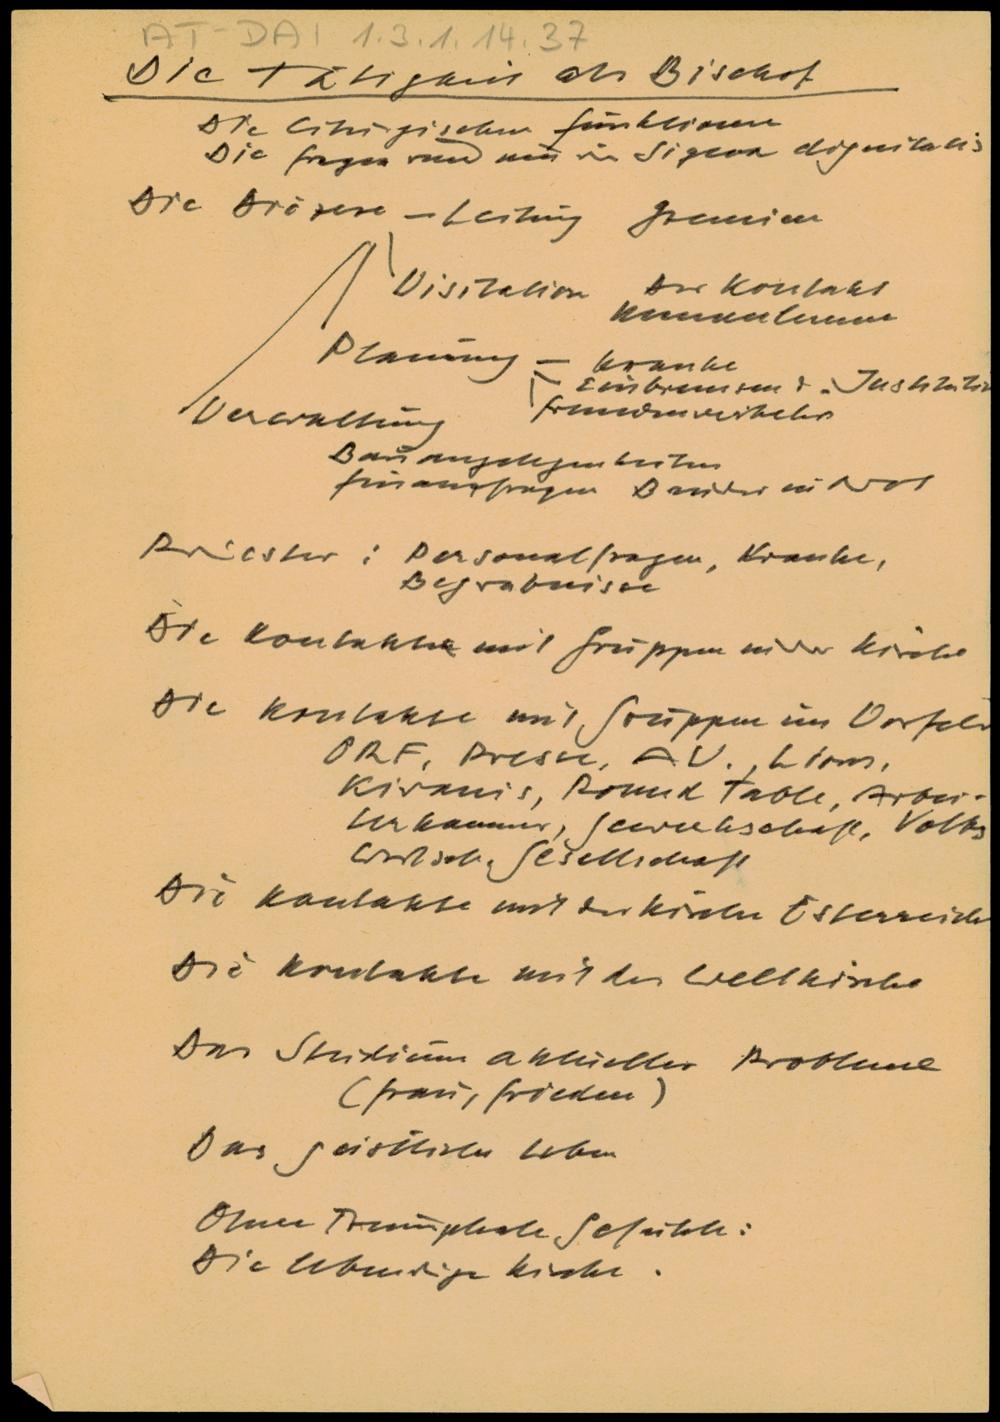 AT-DAI 1.3.1.14.37
Die Tätigkeit als Bischof
Die liturgischen Funktionen
Die Fragen rund um die Signa dignitatis
Die Diözese – Leitung Gremien
Visitation Der Kontakt
Planung – Kranke
Institution
Fremdenverkehr
Verwaltung
Bauangelegenheiten
Finanzfragen Bruder in Not
Priester: Personalfragen, Kranke,
Begräbnisse
Die Kontakte mit Gruppen in der Kirche
Die Kontakte mit Gruppen im Vorfeld
ORF, Presse, A.V., Lions,
Kiwanis, Round Table, Arbei-
terkammer, Gewerkschaft, Volks
wirtsch. Gesellschaft
Die Kontakte mit der Kirche Österreich
Die Kontakte mit der Weltkirche
Das Studium aktueller Probleme
(Frau, Frieden)
Das geistliche Leben
Ohne Triumphale Gefühle:
Die lebendige Kirche.